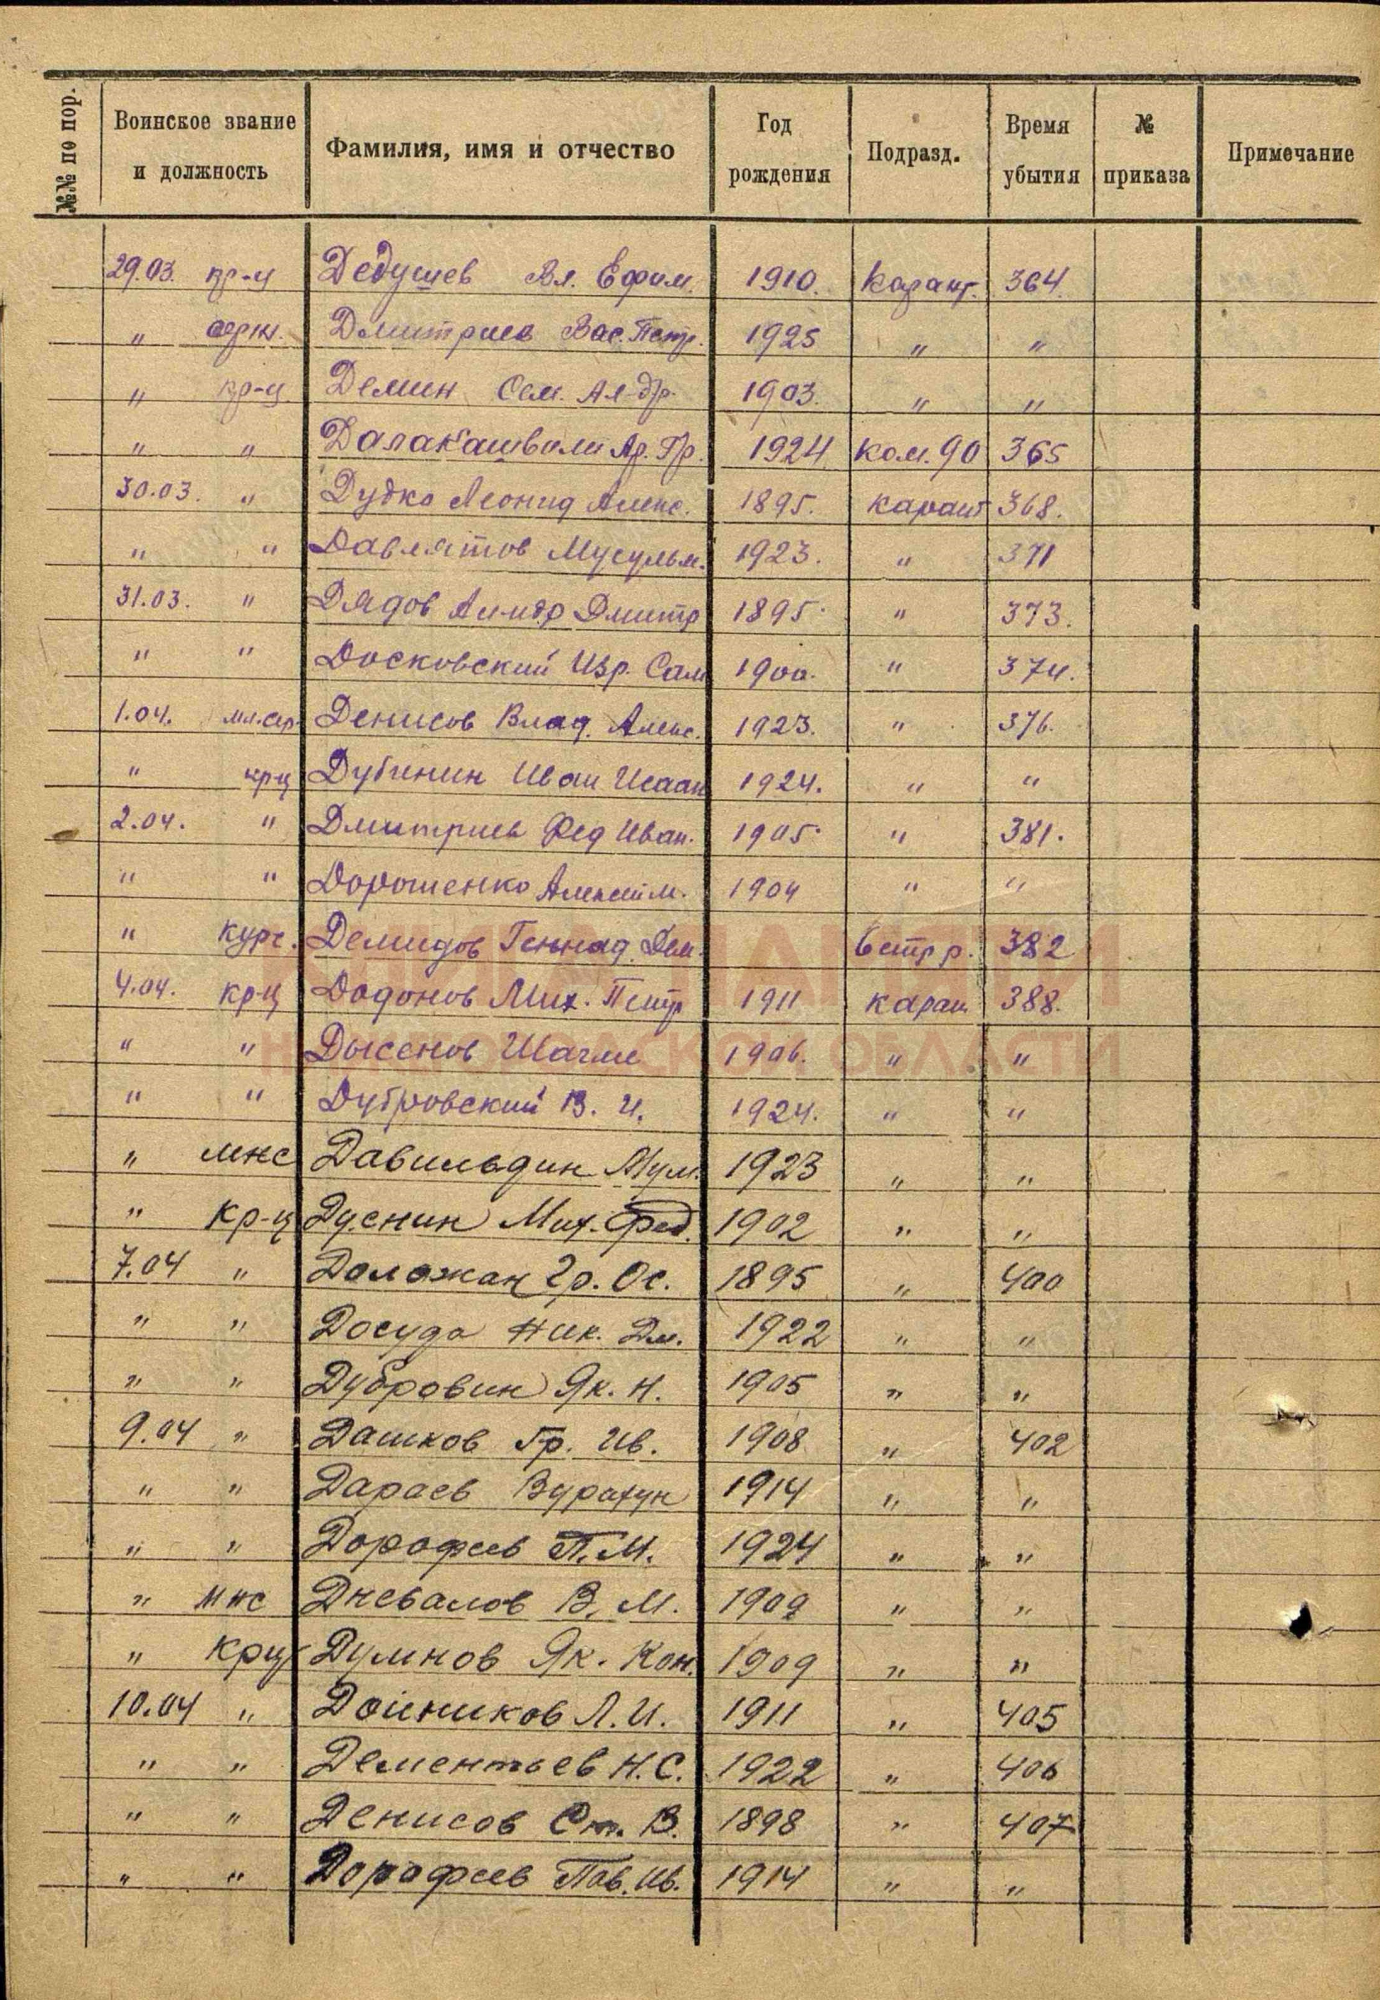 №№ по пор. Воинское звание и должность Фамилия, имя и отчество Год рождения Подразд. Время убытия № приказа Примечание
29.03. кр-ц Дедушев Вл. Ефим. 1910. Карант. 364.
" серж. Дмитриев Вас. Петр. 1925 " "
" кр-ц Демин Сем. Ал-др. 1903. " "
" " Далакашвили Ар. Гр. 1924 ком. 90 365
30.03. " Дудко Леонид Алекс. 1895. карант 368.
" " Давлятов Мусульм. 1923. " 371
31.03. " Дядов Ал-ндр Дмитр 1895. " 373.
" " Досковский Изр. Сам 1900. " 374.
1.04. мл.сер. Денисов Влад. Алекс. 1923. " 376.
" крц Дубинин Иван Исаак 1924. " "
2.04. " Дмитриев Фед Иван. 1905. " 381.
" " Дорошенко Алексей М. 1904 " "
" курс. Демидов Геннад. Дем. 382
4.04. кр-ц Додонов Мих. Петр 1911 каран 388.
" " Дысенов 1906. " "
" " Дубровский В. И. 1924. " "
" мнс Давильдин Мум. 1923 " "
" кр-ц Дуснин Мих. Фед. 1902 " "
7.04 " Доложан Гр. Ос. 1895 " 400
" " Досуда Ник. Дм. 1922 " "
" " Дубровин Як. Н. 1905 " "
9.04 " Дашков Гр. Ив. 1908 " 402
" " Дараев 1914 " "
" " Дорофеев П. М. 1924 " "
" мнс Дневалов В. М. 1909 " "
" крц Думнов Як. Кон. 1909 " "
10.04 " Дойников Л. И. 1911 " 405
" " Дементьев Н. С. 1922 " 406
" " Денисов Ст. В. 1898 " 407
" " Дорофеев Пав. Ив. 1914 " "
КНИГА ПАМЯТИ
НИЖЕГОРОДСКОЙ ОБЛАСТИ